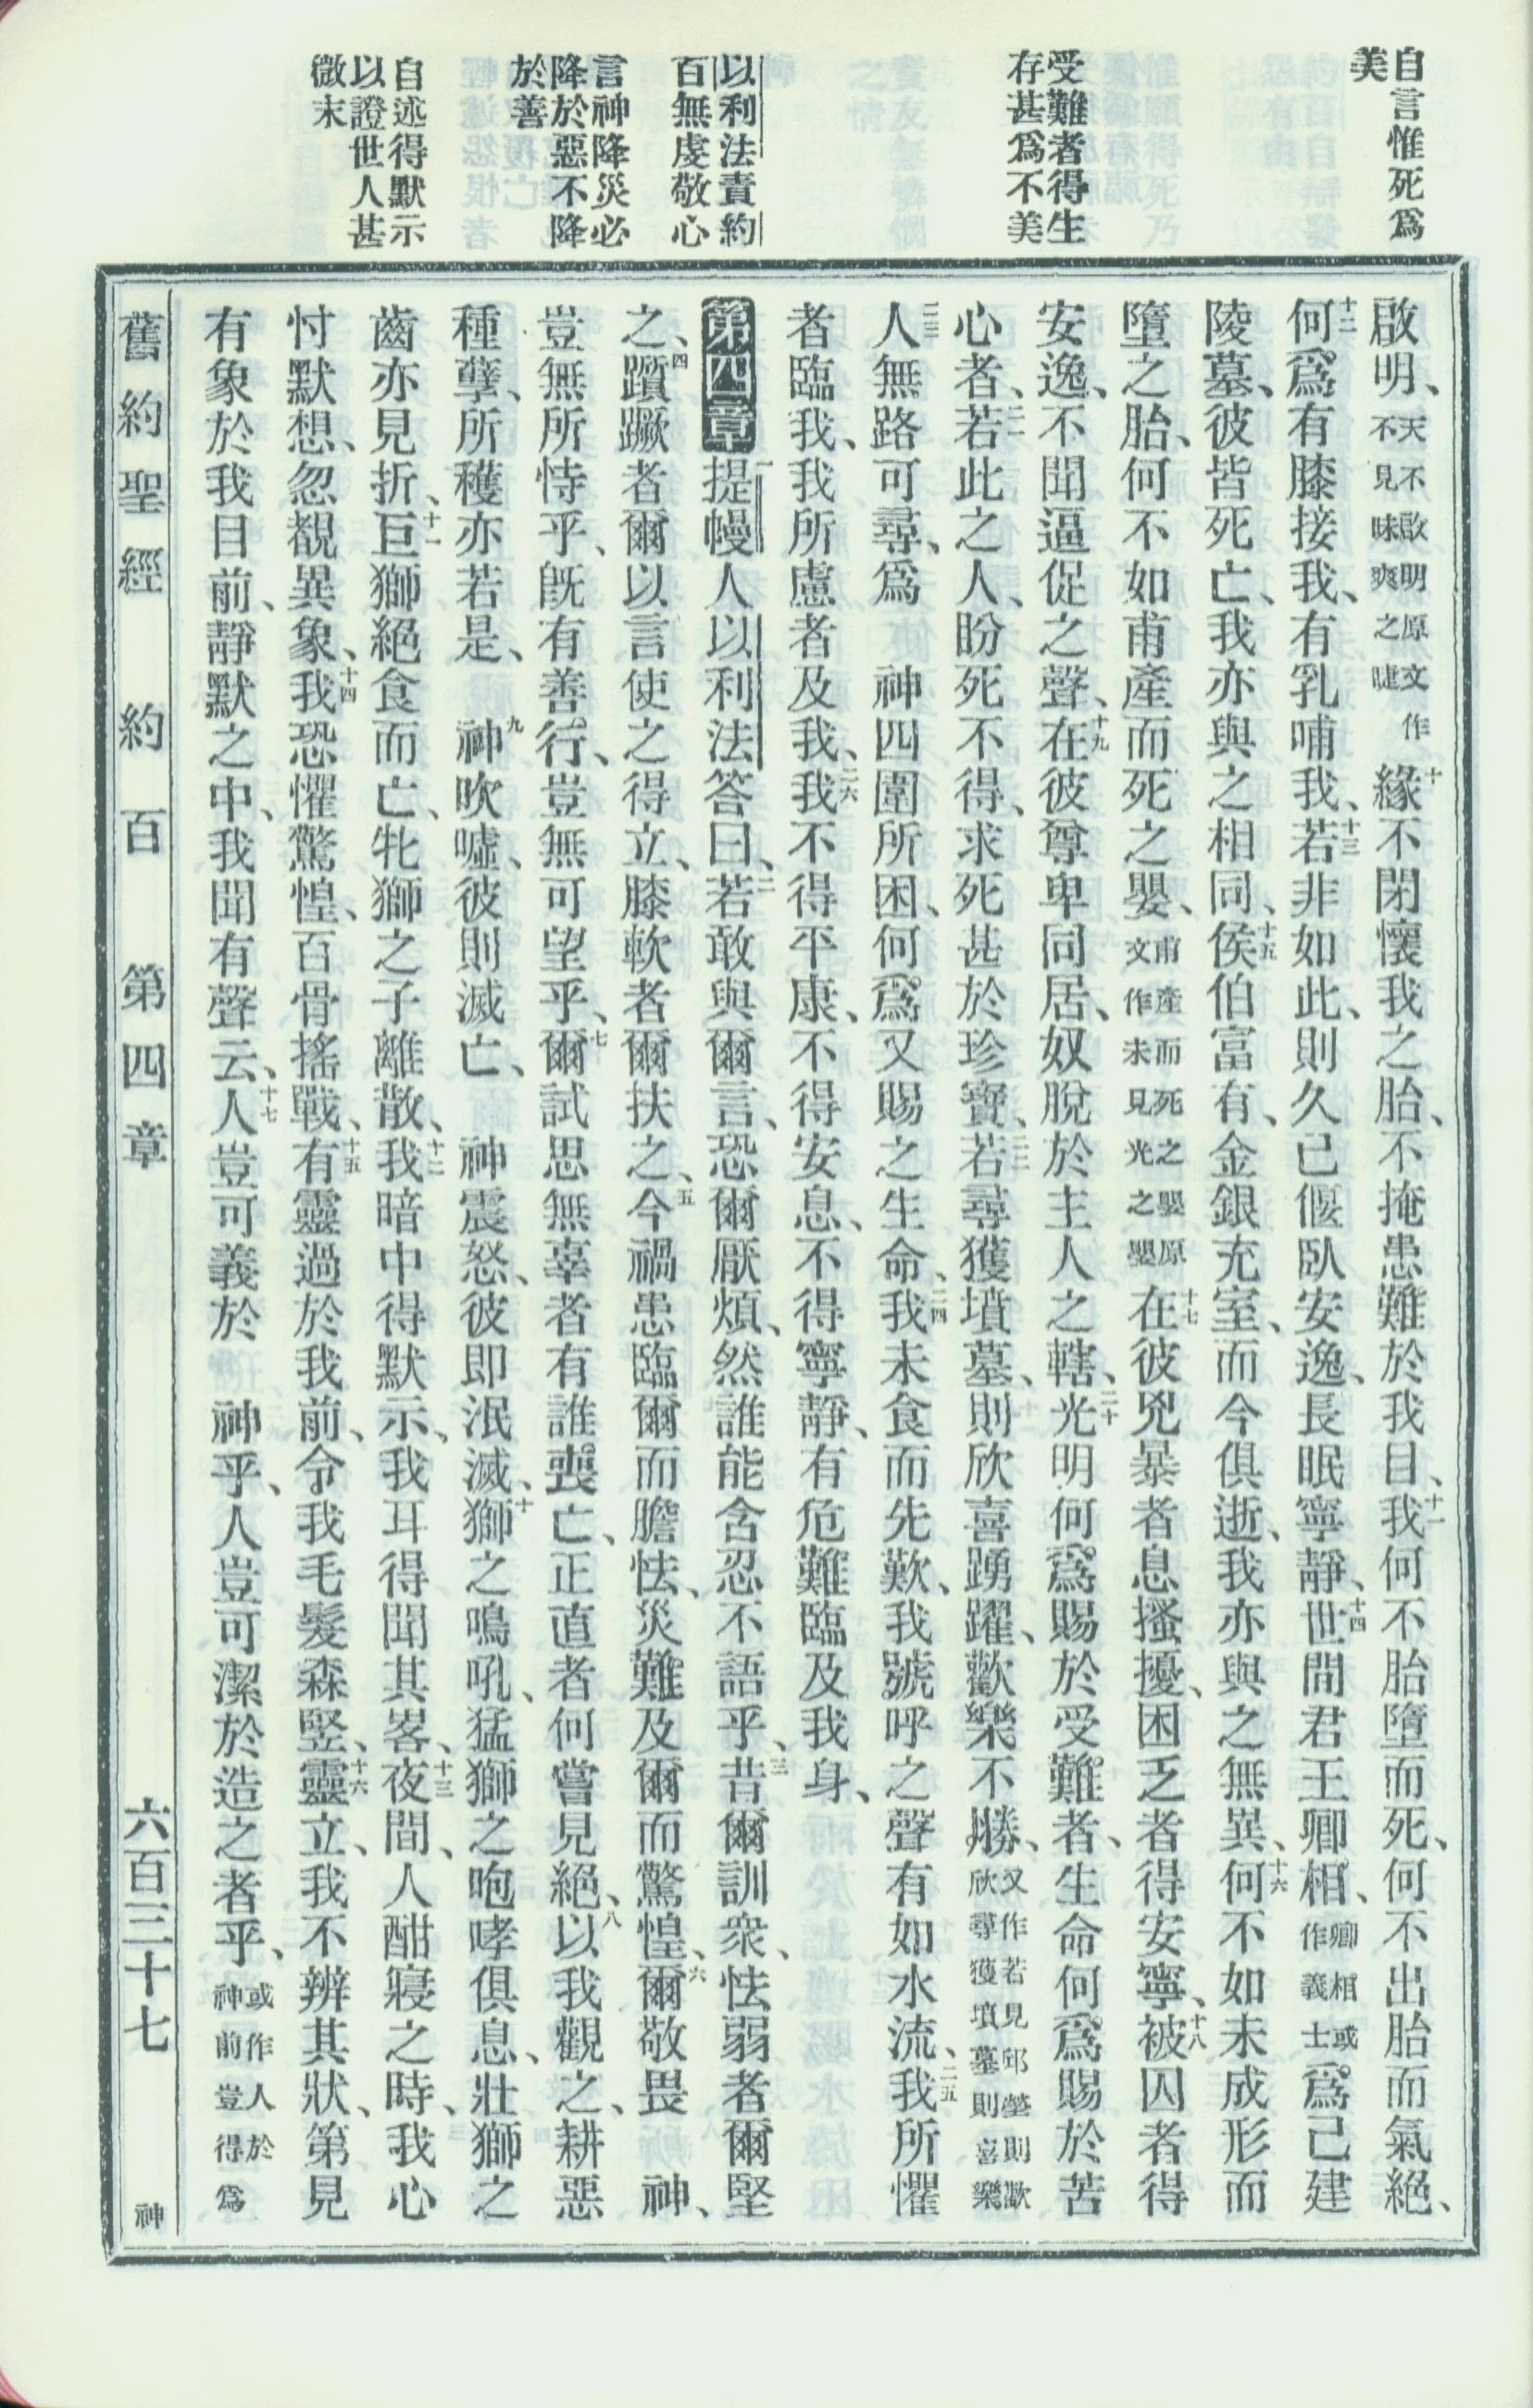 自言惟死爲
美
受難者得生
存甚爲不美
以利法責約
百無虔敬心
言神降災必
降於惡不降
於善
自述得默示
以證世人甚
微末
啟明、天不啟明原文作不見昧爽之睫十緣不閉懷我之胎、不掩患難於我目、十一我何不胎墮而死、何不出胎而氣絕、
十二何爲有膝接我、有乳哺我、十三若非如此、則久已偃臥安逸、長眠寧靜、十四世間君王卿相、卿相或作義士爲己建
陵墓、彼皆死亡、我亦與之相同、十五侯伯富有、金銀充室、而今俱逝、我亦與之無異、十六何不如未成形而
墮之胎、何不如甫產而死之嬰、甫產而死之嬰原文作未見光之嬰十七在彼兇暴者息搔擾、困乏者得安寧、十八被囚者得
安逸、不聞逼促之聲、十九在彼尊卑同居、奴脫於主人之轄、二十光明何爲賜於受難者、生命何爲賜於苦
心者、二一若此之人、盼死不得、求死甚於珍寶、二二若尋獲墳墓、則欣喜踴躍、歡樂不勝、又作若見邱塋則歡欣尋獲墳墓則喜樂
二三人無路可尋、爲 神四圍所困、何爲又賜之生命、二四我未食而先歎、我號呼之聲有如水流、二五我所懼
者臨我、我所慮者及我、二六我不得平康、不得安息、不得寧靜、有危難臨及我身、
第四章 一提幔人以利法答曰、二若敢與爾言、恐爾厭煩、然誰能含忍不語乎、三昔爾訓衆、怯弱者爾堅
之、四躓蹶者爾以言使之得立、膝軟者爾扶之、五今禍患臨爾而膽怯、災難及爾而驚惶、六爾敬畏 神、
豈無所恃乎、旣有善行、豈無可望乎、七爾試思無辜者有誰喪亡、正直者何嘗見絕、八以我觀之、耕惡
種孽、所穫亦若是、九 神吹噓、彼則滅亡、 神震怒、彼即泯滅、十獅之鳴吼、猛獅之咆哮俱息、壯獅之
齒亦見折、十一巨獅絕食而亡、牝獅之子離散、十二我暗中得默示、我耳得聞其畧、十三夜間、人酣寢之時、我心
忖默想、忽覩異象、十四我恐懼驚惶、百骨搖戰、十五有靈過於我前、令我毛髮森竪、十六靈立、我不辨其狀、第見
有象於我目前、靜默之中、我聞有聲云、十七人豈可義於 神乎、人豈可潔於造之者乎、或作人於神前豈得爲
舊約聖經 約百 第四章 六百三十七 神